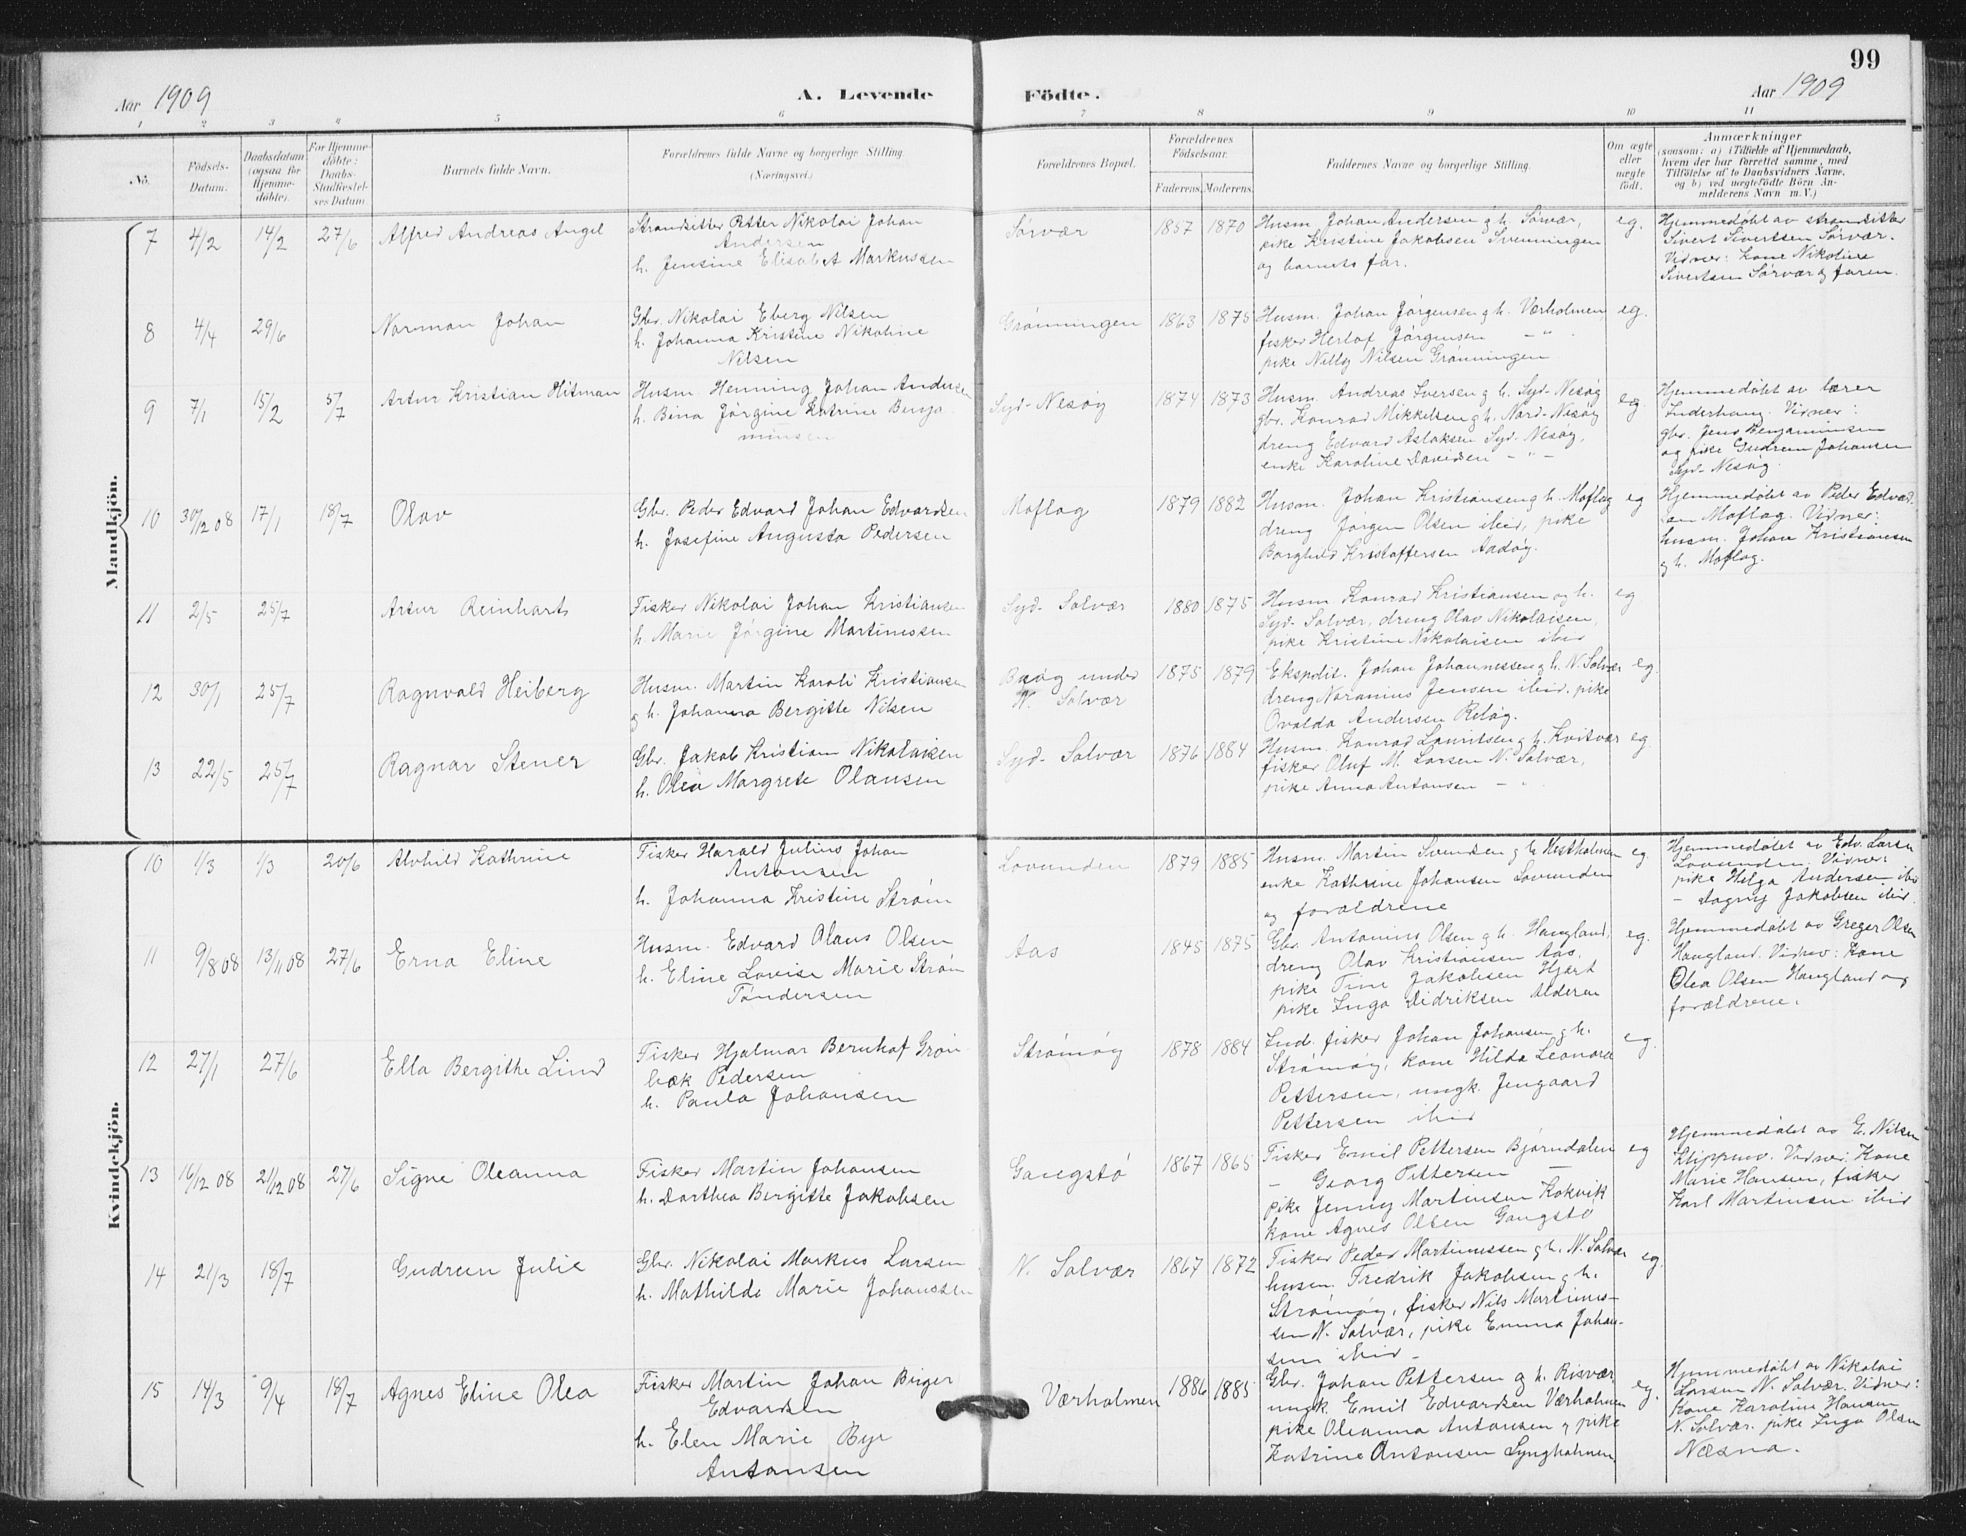 99
Aar 1909
A. Levende Födte.
Aar 1909
1 2 3 4 5 6 7 8 9 10 11
No. Födsels-Datum. Daabsdatum (ogsaa for Hjemmedöbte). For Hjemmedöbte: Daabs-Stadfæstelses Datum Barnets fulde Navn. Forældrenes fulde Navne og borgerlige Stilling (Næringsvei.) Forældrenes Bopæl. Forældrenes Födselsaar. Faderens. Moderens. Faddernes Navne og borgerlige Stilling. Om ægte eller uægte födt. Anmærkninger (saasom: a) i Tilfælde af Hjemmedaab, hvem der har forrettet samme, med Tilföielse af to Daabsvidners Navne, og b) ved uægtefödte Börn Anmelderens Navn m. V.)
Mandkjön.
7 4/2 14/2 27/6 Alfred Andreas Angel
Strandsitter Petter Nikolai Johan
Andersen
h. Jensine Elisabet Markussen
Sørvær 1857 1870
Husm. Johan Andersen g h. Sørvær,
pike Kristine Jakobsen Svenningen
og barnets far.
eg.
Hjemmedøbt av strandsitter
Sivert Sivertsen Sørvær.
Vidner: Kone Nikoline
Sivertsen Sørvær g faren.
8 4/4 29/6 Norman Johan
Gbr. Nikolai Eberg Nilsen
h. Johanna Kristine Nikoline
Nilsen
Grønningen 1863 1875
Husm. Johan Jørgensen g h. Værholmen,
fisker Herlof Jørgensen - " -
pike Nilly Nilsen Grønningen
eg.
9 7/1 15/2 5/7 Artur Kristian Hitman
Husm. Henning Johan Andersen
h. Bina Jørgine Katrine Benja
minsen
Syd-Nesøy 1874 1873
Husm. Andreas Iversen g h. Syd-Nesøy
gbr. Konrad Mikkelsen g h. Nord-Nesøy
dreng Edvard Aslaksen Syd. Nesøy,
enke Karoline Davidsen - " -
eg.
Hjemmedøbt av lærer
Inderhaug. Vidner:
gbr. Jens Benjaminsen
og pike Gudrun Johansen
Syd. Nesøy.
10 30/12 08 17/1 18/7 Olav
Gbr. Peder Edvard Johan Edvardsen
h. Josefine Augusta Pedersen
Moflag 1879 1882
Husm. Johan Kristiansen g h. Moflag
dreng Jørgen Olsen ibid, pike
Borghild Kristoffersen Andøy.
eg
Hjemmedøbt av Peder Edvard
sen Moflag. Vidner:
husm. Johan Kristiansen
g h. Moflag.
11 2/5 25/7 Artur Reinhart
Fisker Nikolai Johan Kristiansen
h. Marie Jørgine Martinussen
Syd-Solvær 1880 1875
Husm. Konrad Kristiansen og h.
Syd-Solvær, dreng Olav Nikolaisen,
pike Kristine Nikolaisen ibid
eg
12 30/1 25/7 Ragnvald Heiberg
Husm. Martin Karoli Kristiansen
g h. Johanna Bergitte Nilsen
under
N. Solvær
1875 1879
Ekspedit. Johan Johannessen g h. N. Solvær
dreng Noranius Jensen ibid. pike
Ovalda Andersen Reløy.
eg.
13 22/5 25/7 Ragnar Stener
Gbr. Jakob Kristian Nikolaisen
h. Olea Margrete Olausen
Syd-Solvær 1876 1884
Husm. Konrad Lauritsen g h. Kvitvær
fisker Oluf M. Larsen N. Solvær,
pike Anna Antonsen - "
eg.
Kvindekjön.
10 1/3 1/3 20/6 Alvhild Kathrine
Fisker Harald Julius Johan
Antonsen
h. Johanna Kristine Strøm
Lovunden 1879 1885
Husm. Martin Svendsen g h. Hestholmen
enke Kathrine Johansen Lovunden
og forældrene
eg.
Hjemmedøbt av Edv. Larsen
Lovunden. Vidner:
pike Helga Andersen ibid
- Dagny Jakobsen ibid.
11 9/8 08 13/11 08 27/6 Erna Eline
Husm. Edvard Olaus Olsen
h. Eline Lovise Marie Strøm
Tøndersen
Aas 1845 1875
Gbr. Antonius Olsen g h. Haugland,
dreng Olav Kristiansen Aas,
pike Tine Jakobsen Hjart
pike Inga Didriksen Alderen
eg.
Hjemmedøbt av Greger Olsen
Haugland. Vidner: Kone
Olea Olsen Haugland og
forældrene.
12 27/1 27/6 Ella Bergithe Lind
Fisker Hjalmar Bernhof Grøn
bæk Pedersen
h. Paula Johansen
Strømøy 1878 1884
Ind. fisker Johan Johansen g h.
Strømøy, kone Hilda Leonore
Pettersen, ungk. Jengaard
Pettersen ibid
eg.
13 16/12 08 21/12 08 27/6 Signe Oleanna
Fisker Martin Johansen
h. Dorthea Bergitte Jakobsen
Gangstø 1867 1865
Fisker Emil Pettersen Bjørndalen
- Georg Pettersen -
pike Jenny Martinsen Kokvik
kone Agnes Olsen Gangstø
eg
Hjemmedøbt av E. Nilsen
Klippen. Vidner: Kone
Marie Hansen, fisker
Karl Martinsen ibid
14 21/3 18/7 Gudrun Julie
Gbr. Nikolai Markus Larsen
h. Mathilde Marie Johansen
N. Solvær 1867 1872
Fisker Peder Martinussen g h. N. Solvær
husm. Fredrik Jakobsen g h.
Strømøy, fisker Nils Martinus-
sen N. Solvær, pike Emma Johan-
sen ibid -
eg.
15 14/3 9/4 18/7 Agnes Eline Olea
Fisker Martin Johan Birger
Edvardsen
h. Elen Marie Bye
Antonsen
Værholmen 1886 1885
Gbr. Johan Pettersen g h. Risvær
ungk. Emil Edvardsen Værholmen
pike Oleanna Antonsen g pike
Katrine Antonsen Lyngholmen
eg.
Hjemmedøbt av Nikolai
Larsen N. Solvær. Vidner:
Kone Karoline Hansen
N. Solvær. pike Inga Olsen
Næsna.